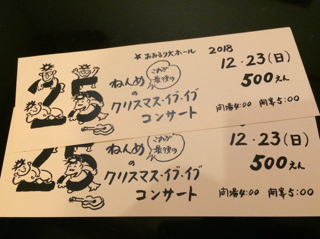 25
おおみる9大ホール 2018
12・23(日)
ねんめ これが最後の 500えん
の
クリスマス・イブ・イブ
コンサート 開場4:00 開宴5:00
25
12・23(日)
ねんめ これが最後の 500えん
の
クリスマス・イブ・イブ
コンサート 開場4:00 開宴5:00